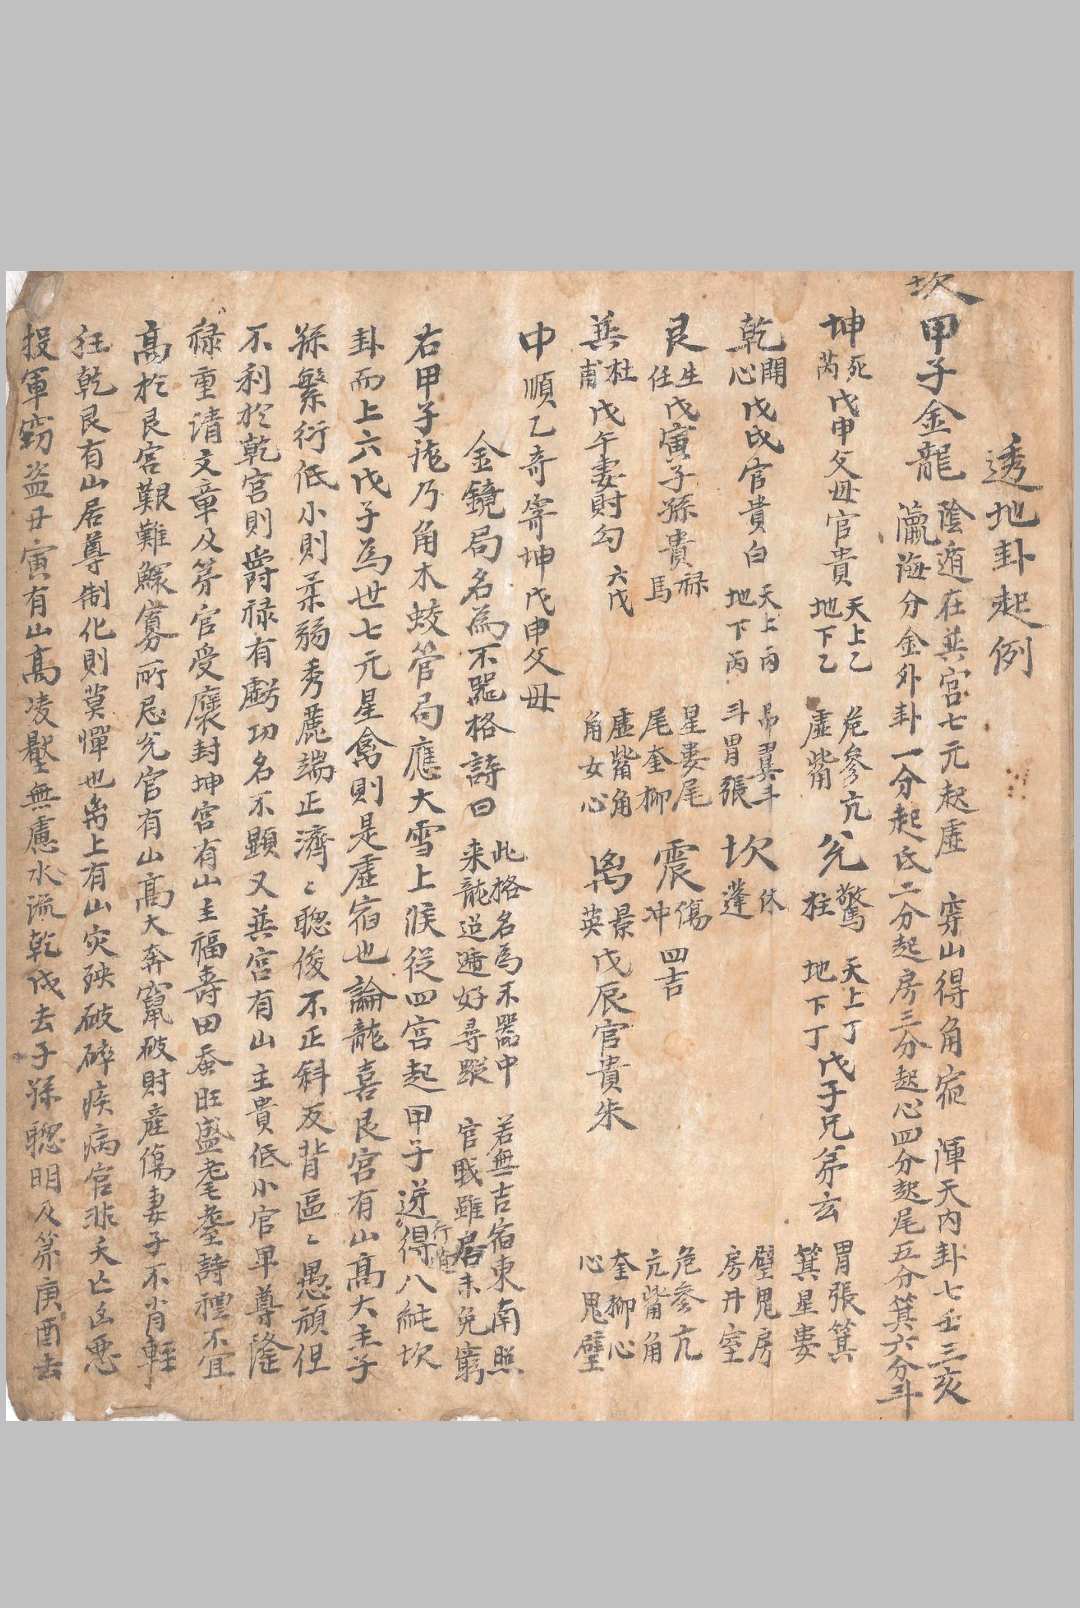 透地卦起例
坎甲子金龍
陰遁在巽宮七元起虛 穿山得角宿 渾天內卦七壬三亥
瀛海分金外卦一分起氐二分起房三分起心四分起尾五分箕六分斗
坤 死芮 戊申父毋官貴 天上乙地下乙 危參亢虛觜 兌 驚柱 天上丁地下丁 戊子兄弟玄 胃張箕箕星婁
乾 開心 戊戌官貴白 天上丙地下丙 昴翼斗斗胃張 坎 休蓬 壁鬼房房井室
艮 生任 戊寅子孫貴 祿馬 星婁尾尾奎柳 震 傷冲 四吉 危參亢亢觜角
巽 杜甫 戊午妻財勾 六戊 虛觜角角女心 离 景英 戊辰官貴朱 奎柳心心鬼壁
中 順乙奇寄坤戊申父毋
金鏡局名為不器格詩曰 此格名為不器中 来龍迢遞好尋蹤 若無吉宿東南照 官戝雖居未免窮
右甲子龍乃角木蛟管局應大雪上候從四宮起甲子逆行遁得八純坎
卦而上六戊子為世七元星禽則是虛宿也論龍喜艮宮有山高大主子
孫繁衍低小則柔弱秀麗端正濟〻聰俊不正斜反背區〻愚頑但
不利於乾宮則爵祿有虧功名不顯又巽宮有山主貴低小官卑尊隆
祿重清文章及第官受褒封坤宮有山主福壽田蚕旺盛耄耋詩禮不宜
高於艮宮艱難鰥寡所忌兌官有山高大奔竄破財産傷妻子不肖輊
狂乾艮有山居尊制化則莫憚也离上有山灾殃破碎疾病官非夭亡凶悪
投軍窃盗丑寅有山高凌壓無慮水流乾戌去子孫聰明及第庚酉去